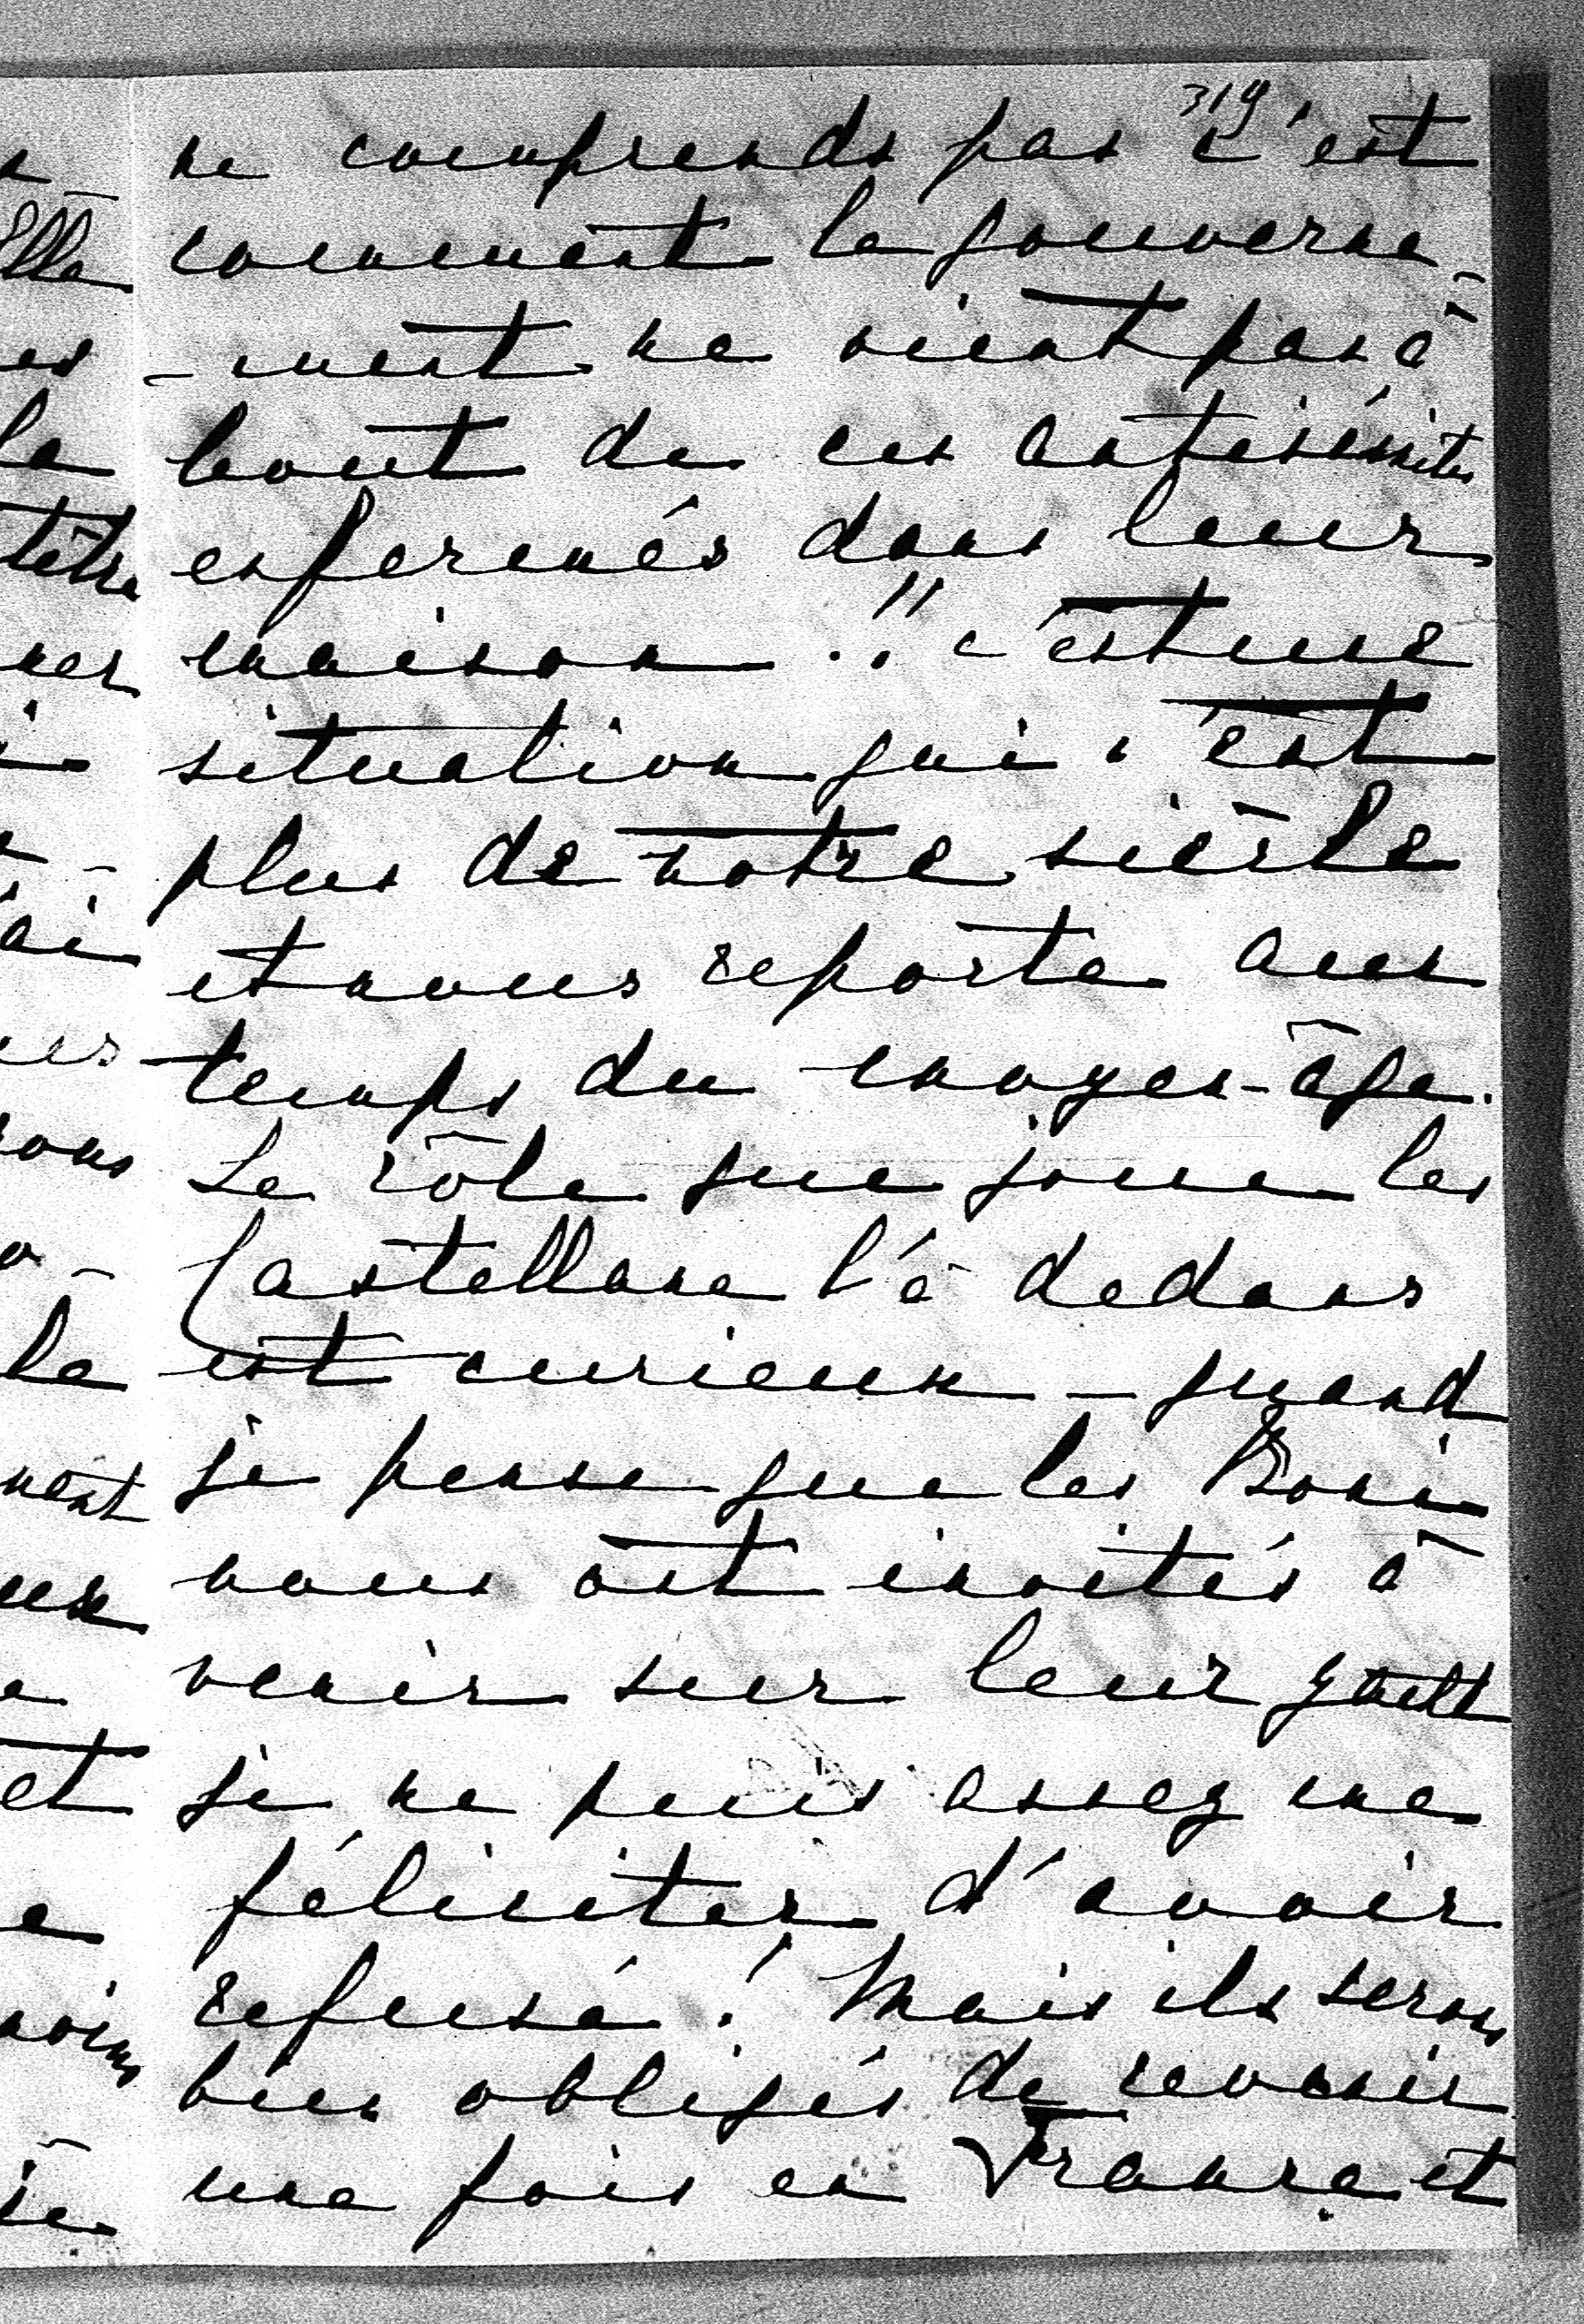 319
ne comprends pas c'est
comment le gouverne-
-ment ne vient pas à
bout de ces antisémites
enfermés dans leur
maison..!! c'est une
situation qui n'est
plus de notre siècle
et nous reporte aux
temps du moyen-âge.
Le rôle que joue les
Castellane là dedans
est curieux - quand
je pense que les Boni
nous ont invités à
venir sur leur yacht
je ne puis assez me
féliciter d'avoir
refusé! Mais ils serons
bien obligés de revenir
une fois en France et